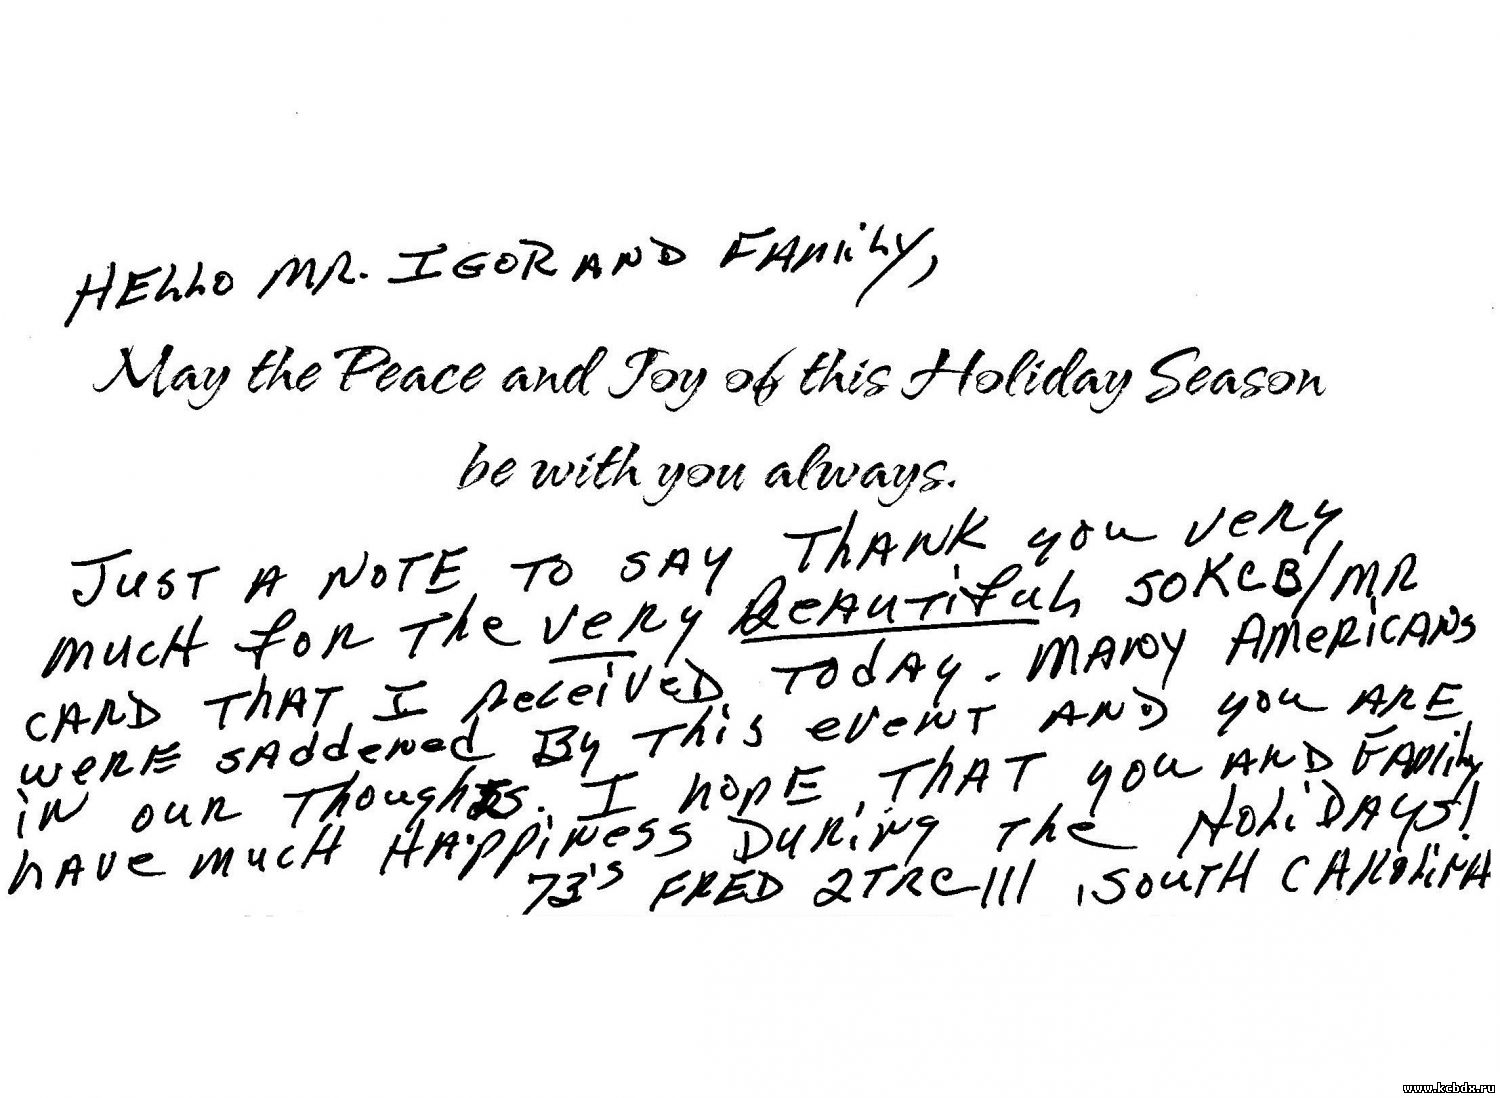 HELLO MR. IGOR AND FAMILY,
May the Peace and Joy of this Holiday Season
be with you always.
JUST A NOTE TO SAY THANK you very
much for The very BEAUTIFUL 50KCB/MR
CARD THAT I received TODAY. MANY AMERICANS
were saddened By This event AND you ARE
in our Thoughts. I hope THAT you AND FAMily
have much HAppiness During The HoliDAYS!
73's FRED 2TRC111, SOUTH CAROLINA
www.kcbdx.ru